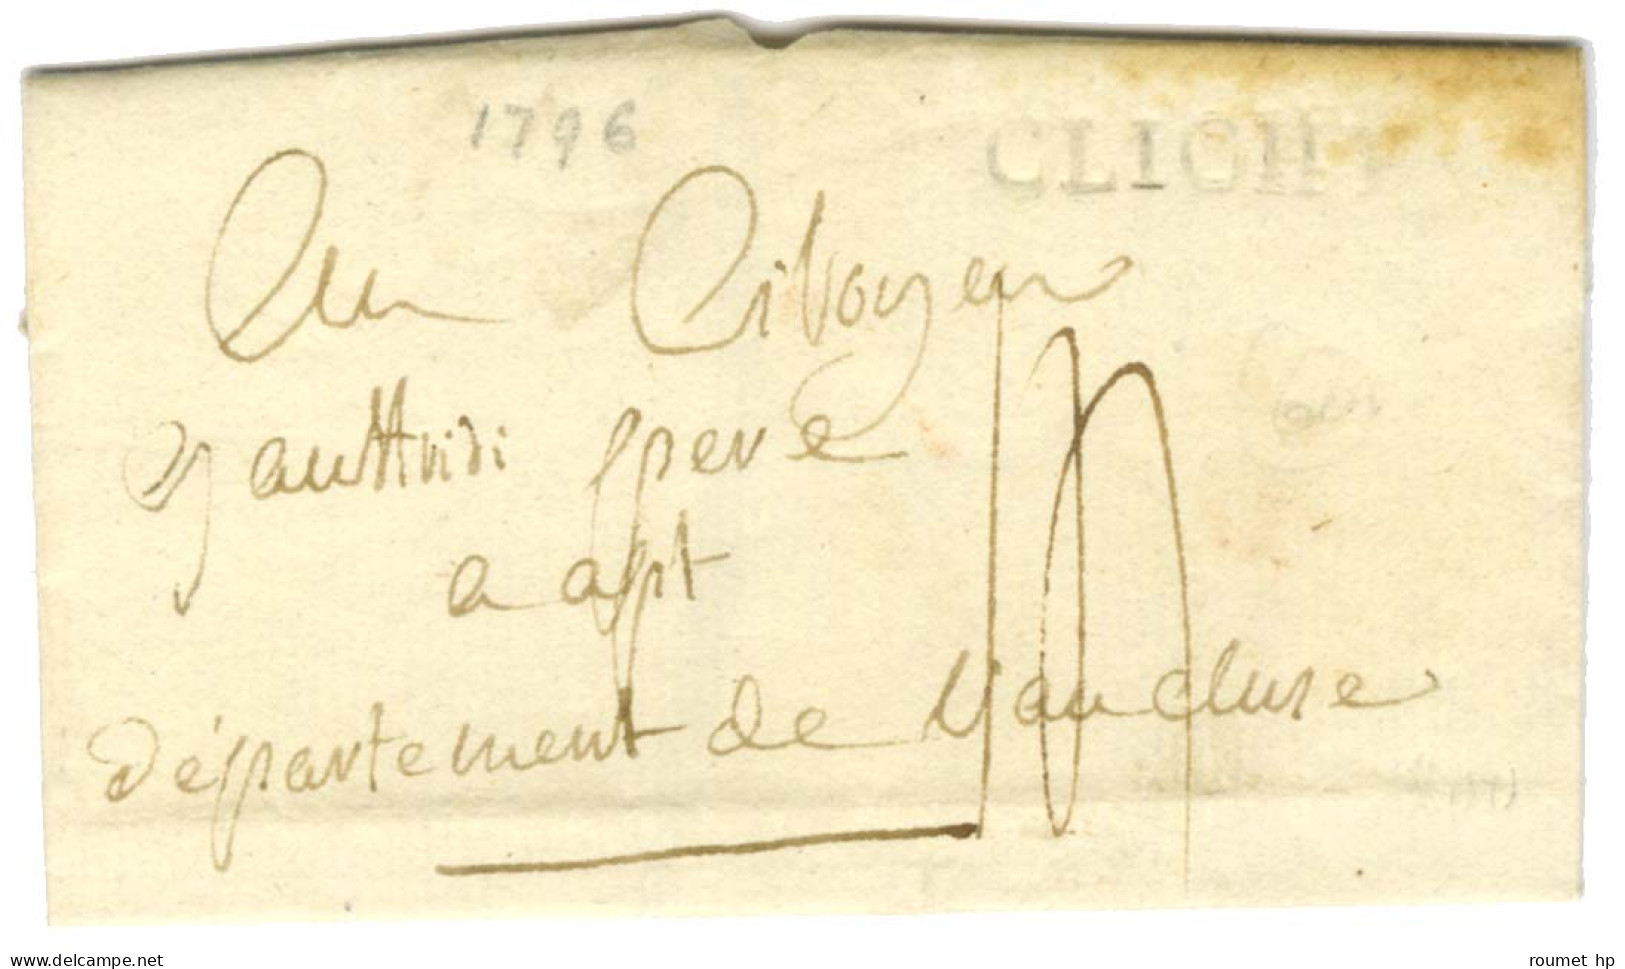 1796
CLICHY
Au Citoyen
gautthidi pere
a apt
département de Vaucluse
delcampe.net
roumet hp